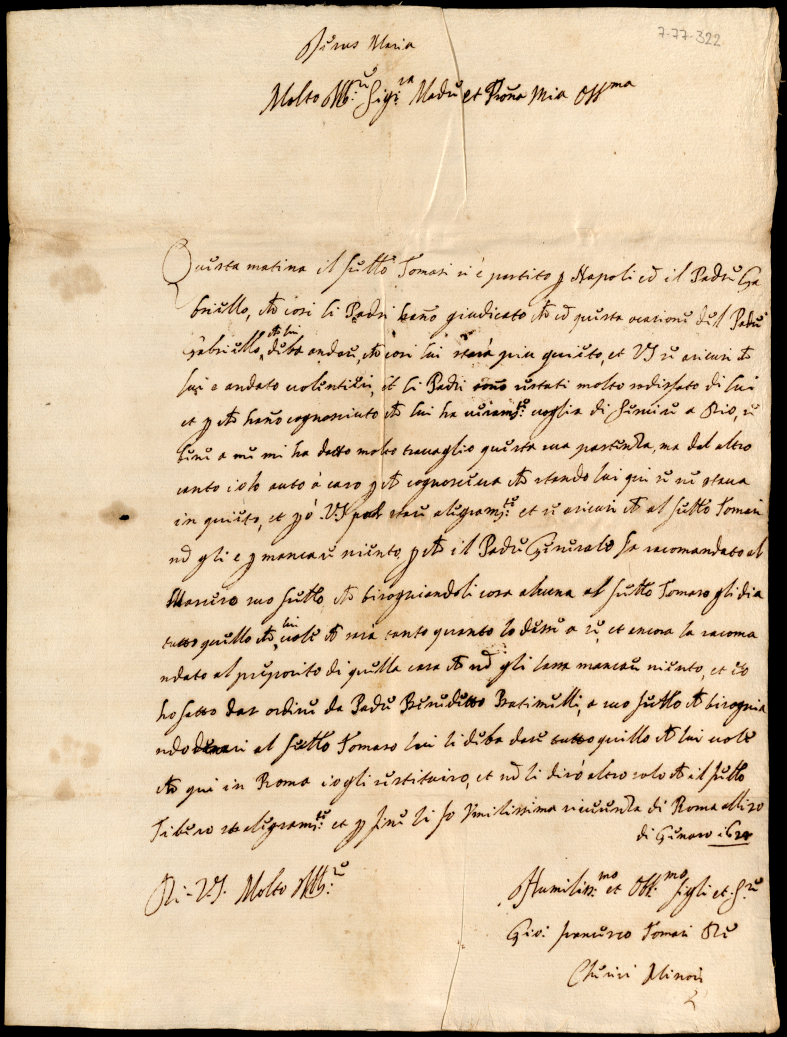 7-77-322
Jesus Maria
Molto Ill:re Sig:ra Madre et Prona Mia Oss:ma
Questa matina il fratello Tomasi si è partito p Napoli cō il Padre Ga
briello, che cosi li Padri hano giudicato che cō questa ocasione del Padre
Gabriello, che lui deba andare, che cosi lui starà piu quieto, et VS si asicuri che
lui è andato volentieri, et li Padri sono restati molto sodisfato di lui
et p che hano cognosciuto che lui ha veram:te voglia di servire a Dio, se
bene a me mi ha dato molto travaglio questa sua partenza, ma dal altro
canto io ho auto a caro p che cognosceva che stando lui qui se ne stava
in quieto, et p ò VS stare alegram:te et si asicuri che al fratello Tomasi
nō gli è p mancare niente, p che il Padre Generale ha racomandato al
suo fratello che bisogniandoli cosa alcuna al fratello Tomaso gli dia
tutto quello che lui vole che sarà tanto quanto lo dessi a se, et ancora la racoma
ndato al preposito di quella casa che nō gli lassa mancare niente, et io
ho fatto dar ordine da Padre Benedetto, a suo fratello che bisognia
ndo denari al fratello Tomaso lui li deba dare tutto quello che lui vole
che qui in Roma io gli restituiro, et nō li dirò altro solo che il fratello
Tiberio sta alegram:te et p fine li fo Umilissima riverenza di Roma alli 20
di Genaro
Di VS. Molto Ill:re
Humiliss:mo et Oss:mo figli et S:re
Gio: francesco Tomasi de
Cherici Minori